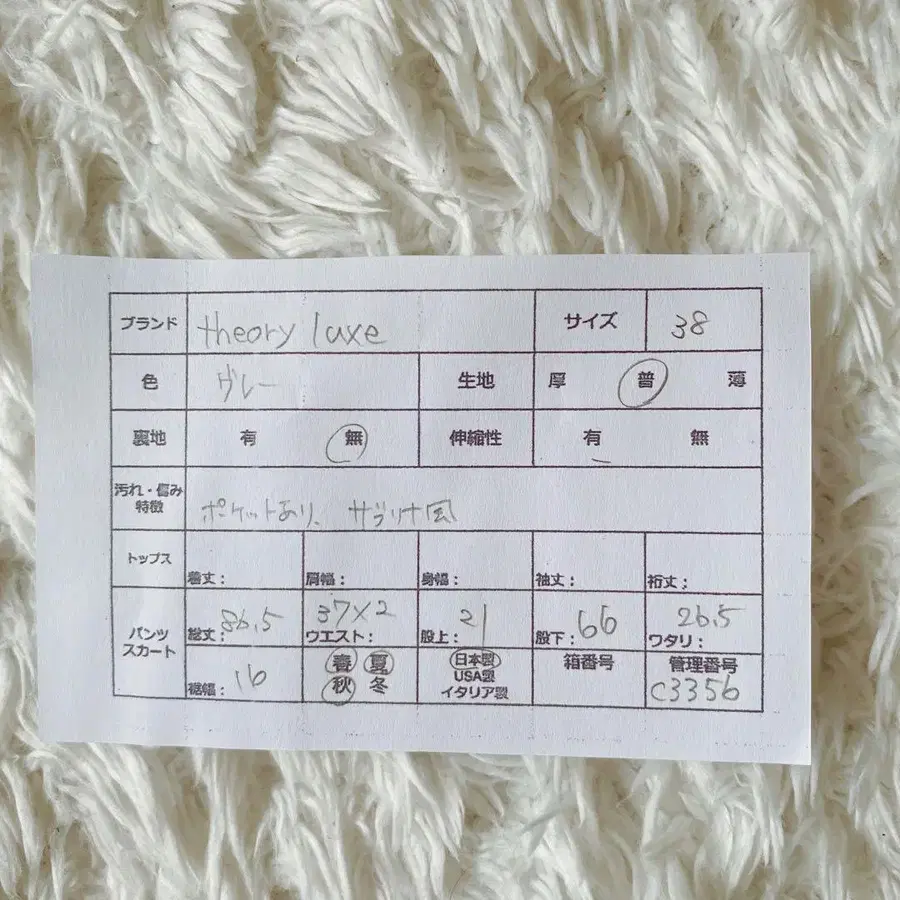 ブランド theory luxe サイズ 38
色 グレー 生地 厚 普 薄
裏地 有 無 伸縮性 有 無
汚れ・傷み
特徴 ポケットあり、サブリナ風
トップス 着丈: 肩幅: 身幅: 袖丈: 裄丈:
パンツ
スカート 総丈: 86.5 ウエスト: 37×2 股上: 21 股下: 66 ワタリ: 26.5
裾幅: 16 春 夏 秋 冬 日本製 USA製 イタリア製 箱番号 管理番号 C3356